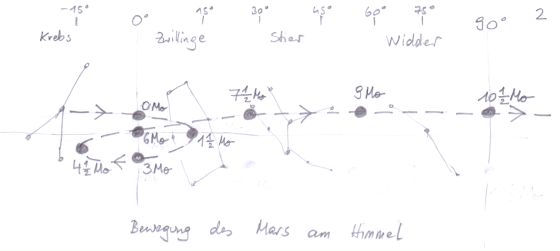 -15° 0° 15° 30° 45° 60° 75° 90° 2
Krebs Zwillinge Stier Widder
0Mo 7½Mo 9Mo 10½Mo
6Mo 1½Mo
4½Mo 3Mo
Bewegung des Mars am Himmel